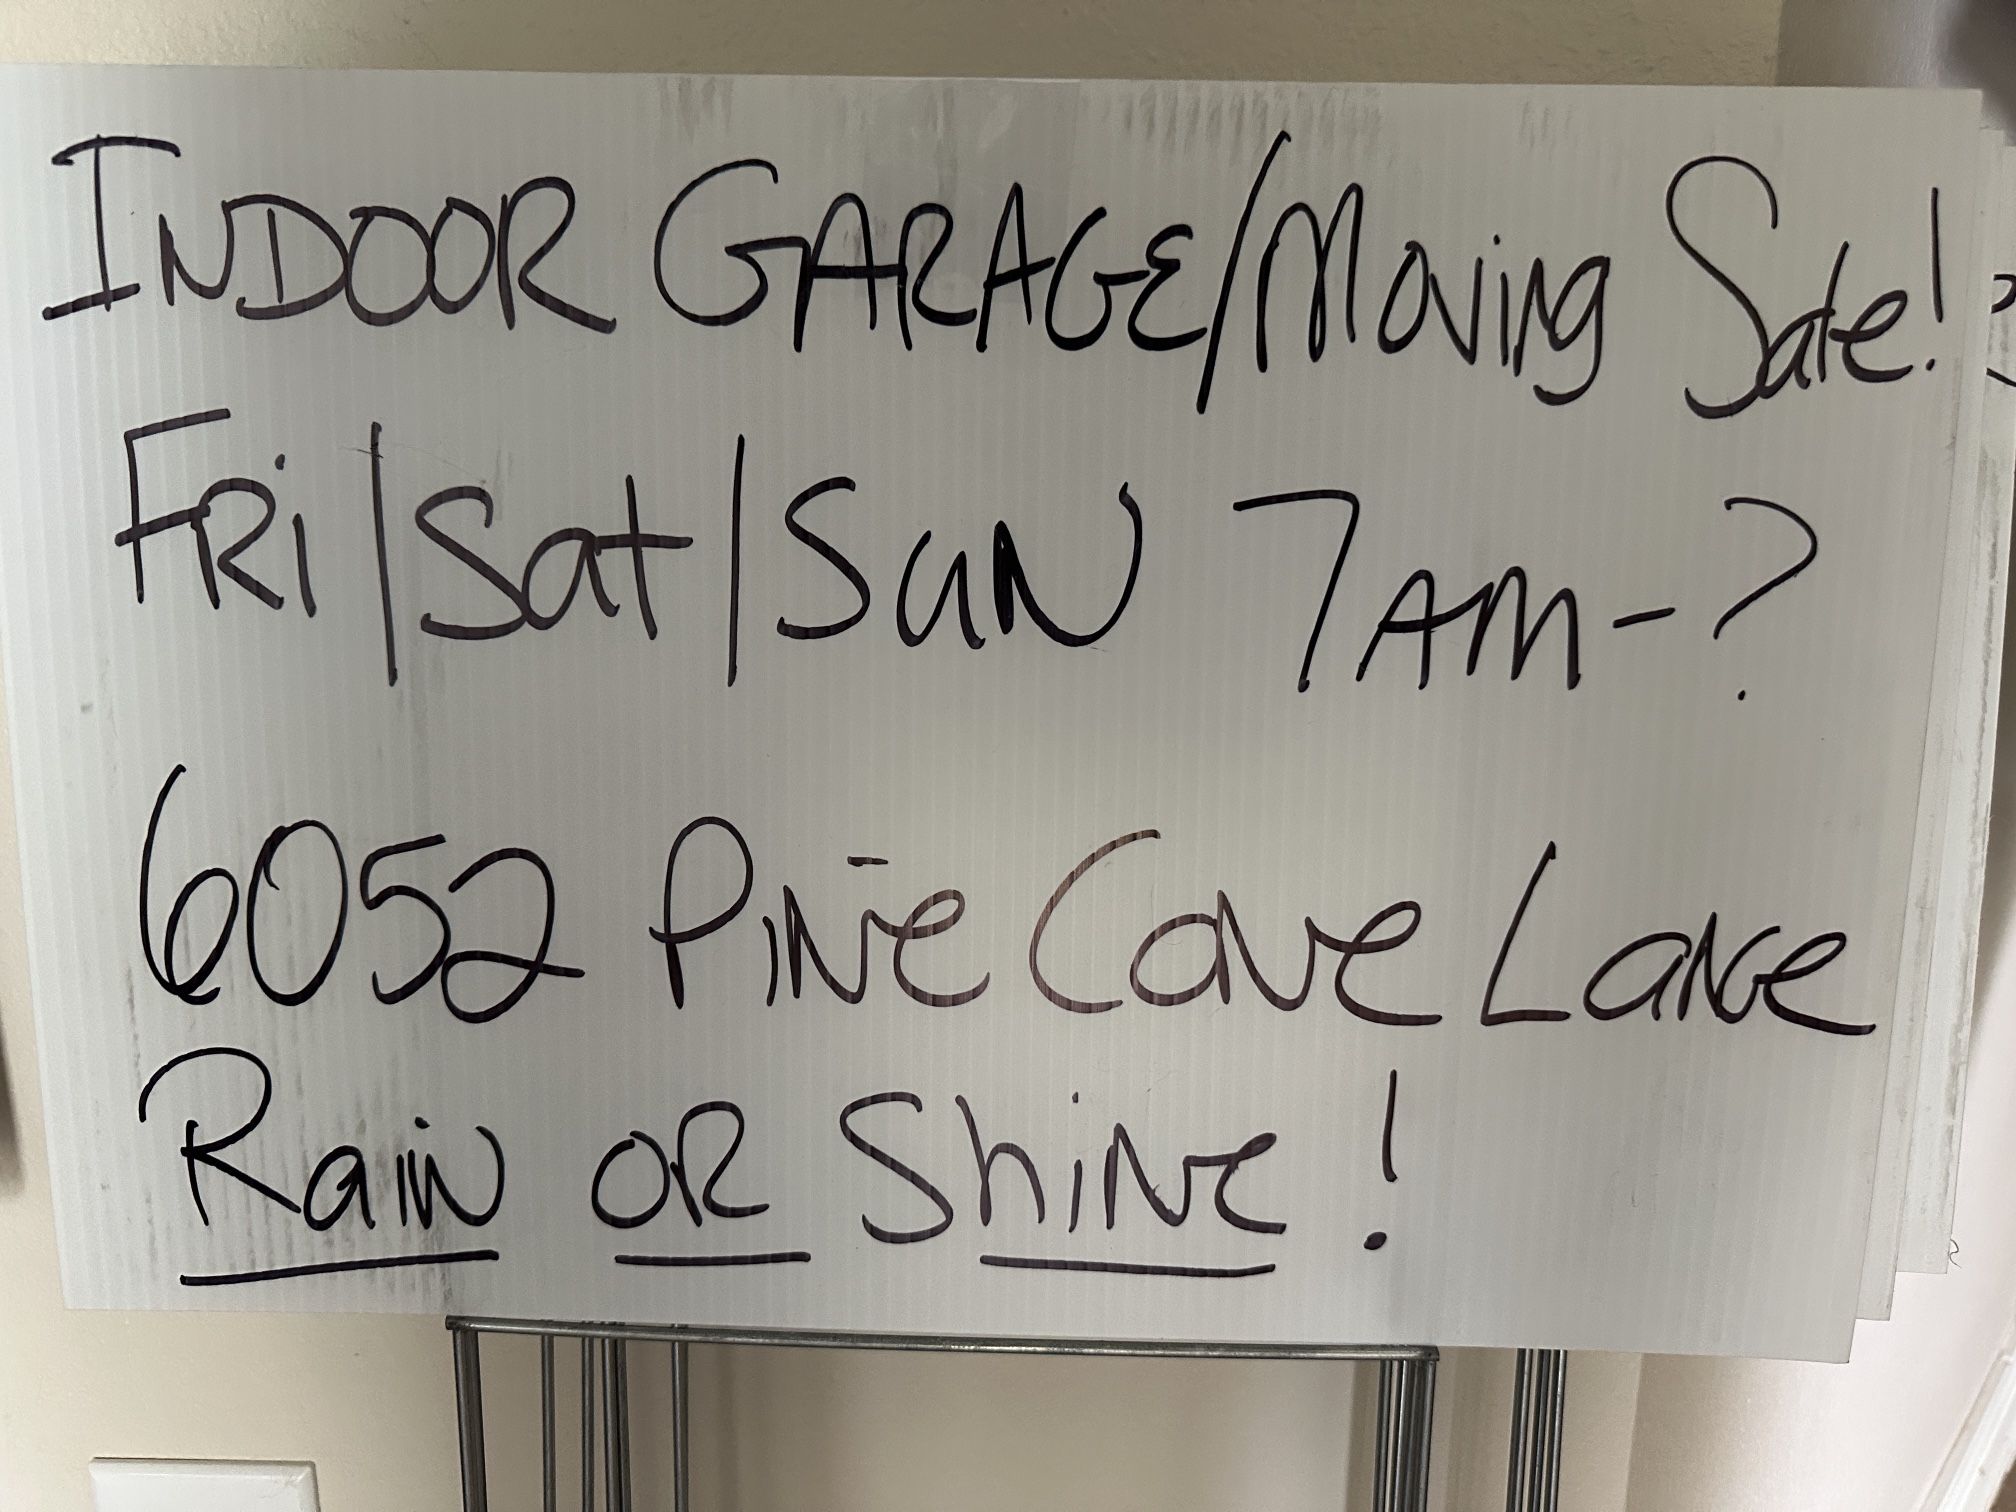 INDOOR GARAGE/Moving Sale!
FRi/Sat/SUN 7AM-?
6052 PiNe Cove Lane
Rain OR ShiNe!